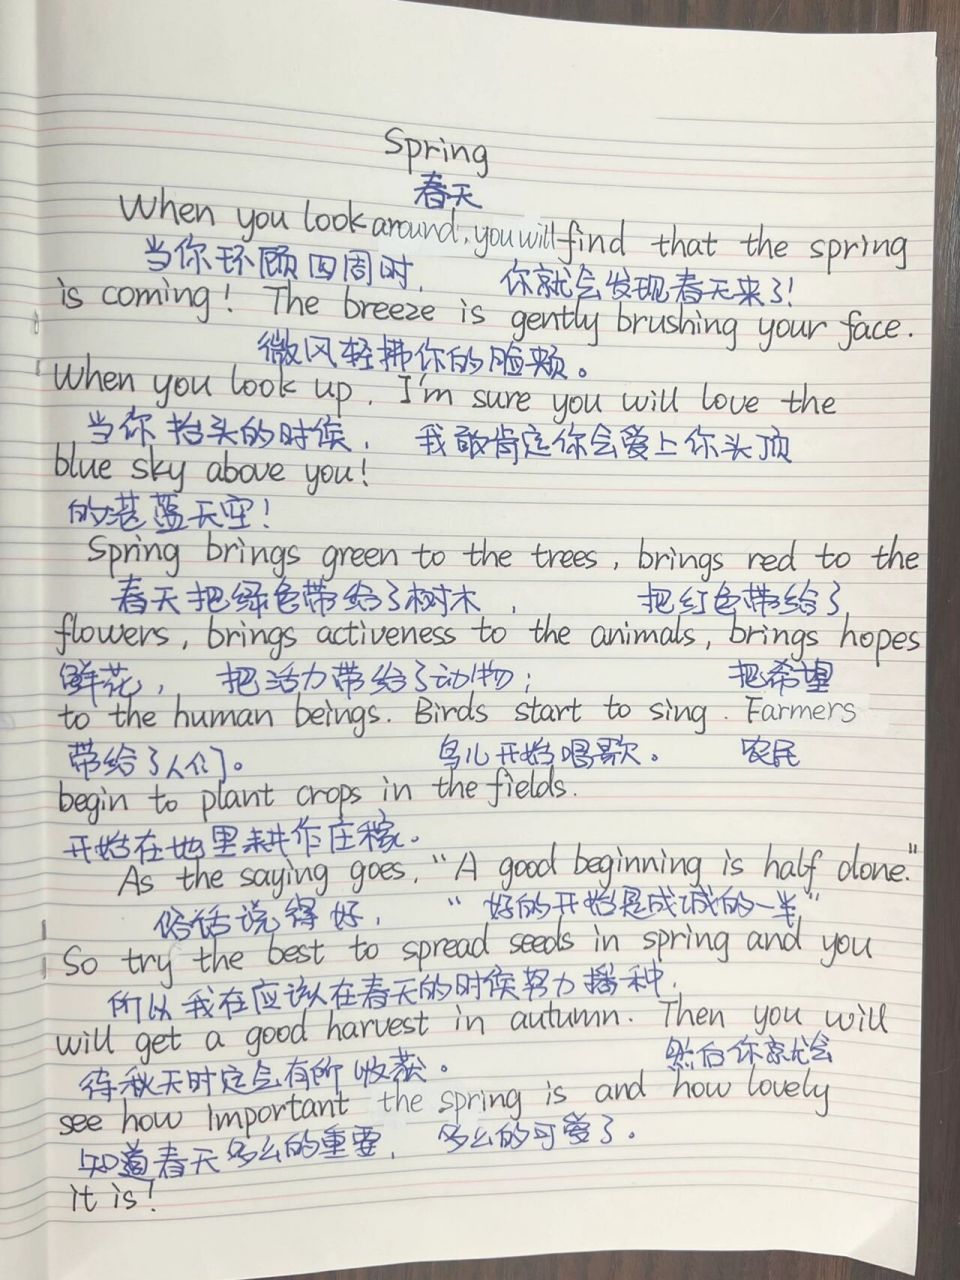 Spring
春天
When you look around, you will find that the spring
当你环顾四周时, 你就会发现春天来了!
is coming! The breeze is gently brushing your face.
微风轻拂你的脸颊。
When you look up, I'm sure you will love the
当你抬头的时候, 我敢肯定你会爱上你头顶
blue sky above you!
的湛蓝天空!
Spring brings green to the trees, brings red to the
春天把绿色带给了树木, 把红色带给了
flowers, brings activeness to the animals, brings hopes
鲜花, 把活力带给了动物; 把希望
to the human beings. Birds start to sing. Farmers
带给了人们。 鸟儿开始唱歌。 农民
begin to plant crops in the fields.
开始在地里耕作庄稼。
As the saying goes, "A good beginning is half done."
俗话说得好, "好的开始是成诚的一半"
So try the best to spread seeds in spring and you
所以我在应该在春天的时候努力播种,
will get a good harvest in autumn. Then you will
待秋天时定会有所收获。 然后你就会
see how important the spring is and how lovely
知道春天多么的重要, 多么的可爱了。
it is!